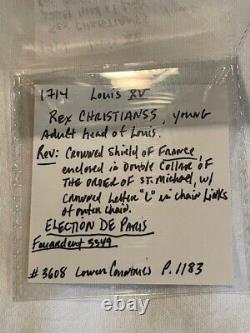 1714 Louis XV
REX CHRISTIANSS, young
Adult Head of Louis.
Rev: Crowned Shield of France
enclosed in Double Collar OF
THE ORDER OF ST. Michael, w/
Crowned Letter "L" in chair Links
of outer chain.
ELECTION DE PARIS
Feuardent 5549
#3608 Lower Countries P. 1183
ebay